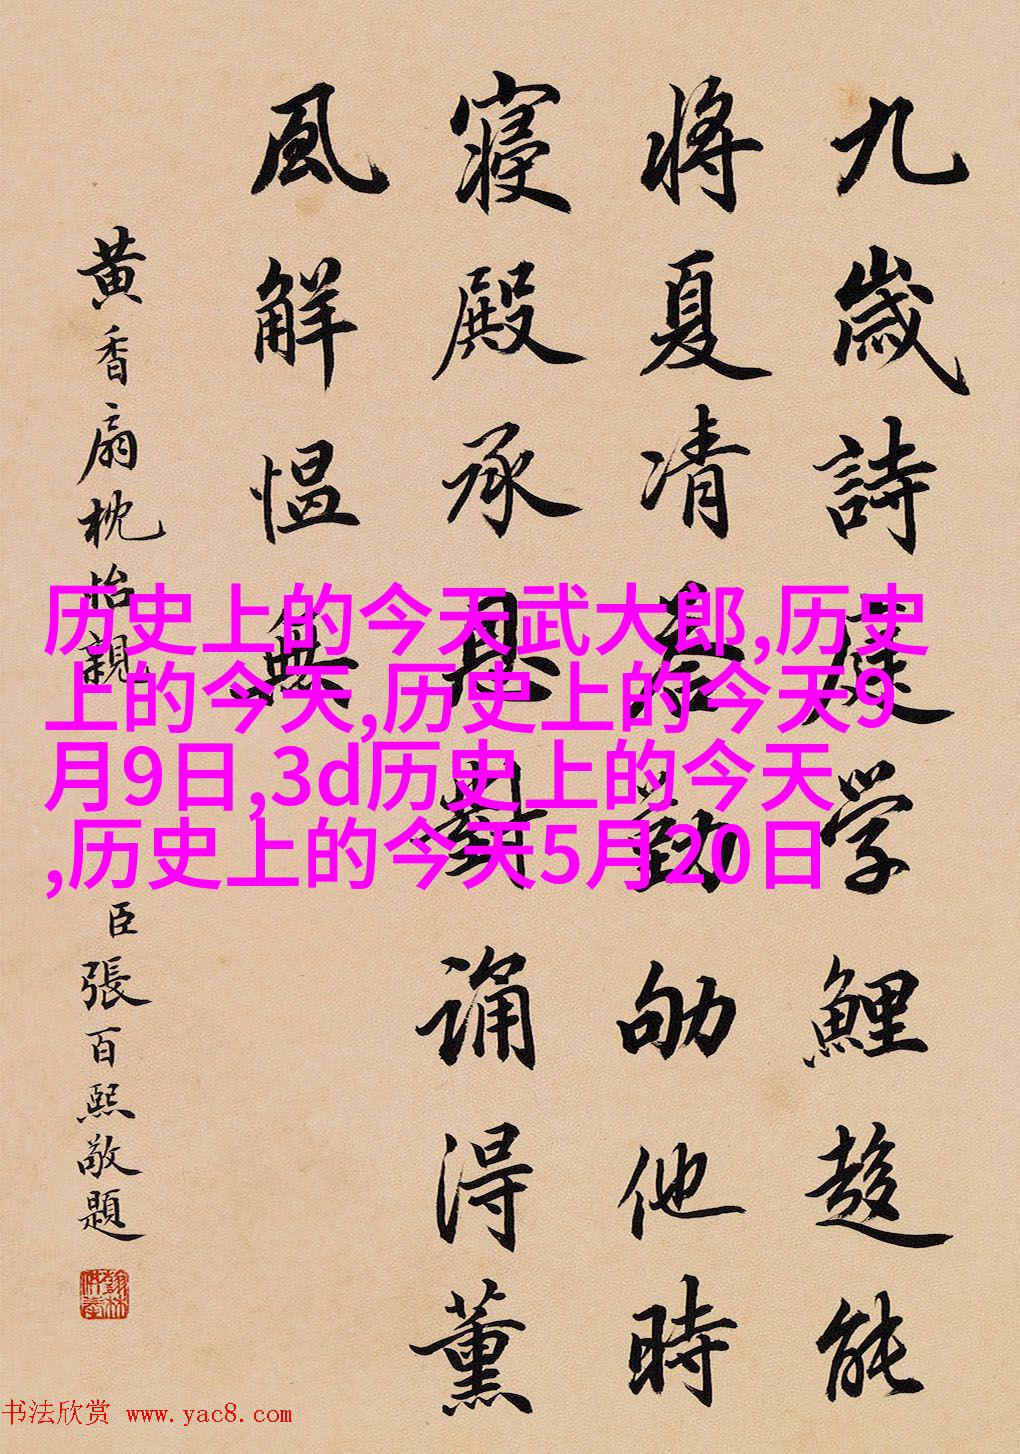 九歲詩庭學鯉趍能
將夏凊勤劬他時
寢殿承恩對誦得薰
風解慍無
黄香扇枕怡親
臣張百熙敬題
历史上的今天武大郎,历史
上的今天,历史上的今天9
月9日,3d历史上的今天
,历史上的今天5月20日
书法欣赏 www.yac8.com